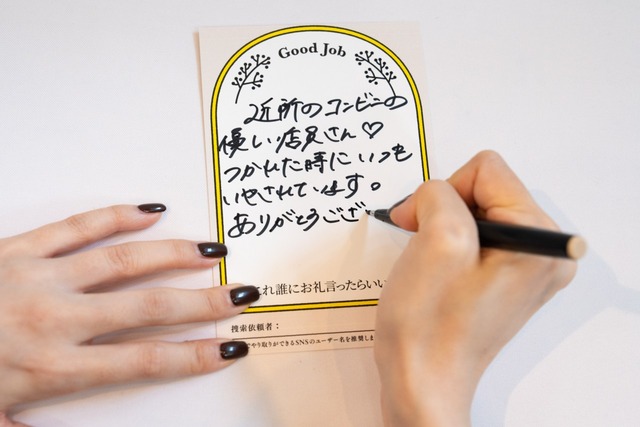 Good Job
近所のコンビニの
優しい店員さん♡
つかれた時にいつも
いやされています。
ありがとうござ
これ誰にお礼言ったらいい
捜索依頼者：
でやり取りができるSNSのユーザー名を推奨しま